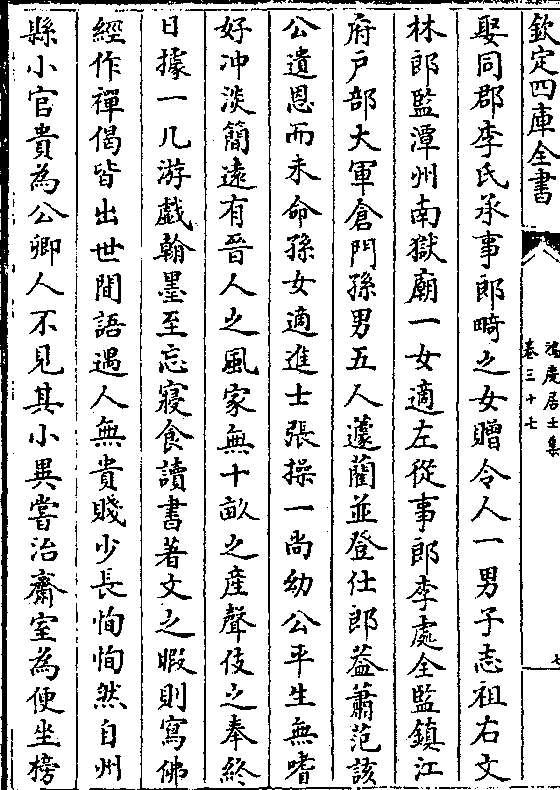 欽定四庫全書
鴻慶居士集
卷三十七
七
娶同郡李氏承事郎疇之女贈令人一男子志祖右文
林郎監潭州南獄廟一女適左從事郎李處全監鎮江
府戸部大軍倉門孫男五人蘧藺並登仕郎益蕭范該
公遺恩而未命孫女適進士張操一尚幼公平生無嗜
好冲淡簡遠有晉人之風家無十畝之産聲伎之奉終
日據一几游戲翰墨至忘寢食讀書著文之暇則寫佛
經作禪偈皆出世間語遇人無貴賤少長恂恂然自州
縣小官貴為公卿人不見其小異嘗治齋室為便坐榜